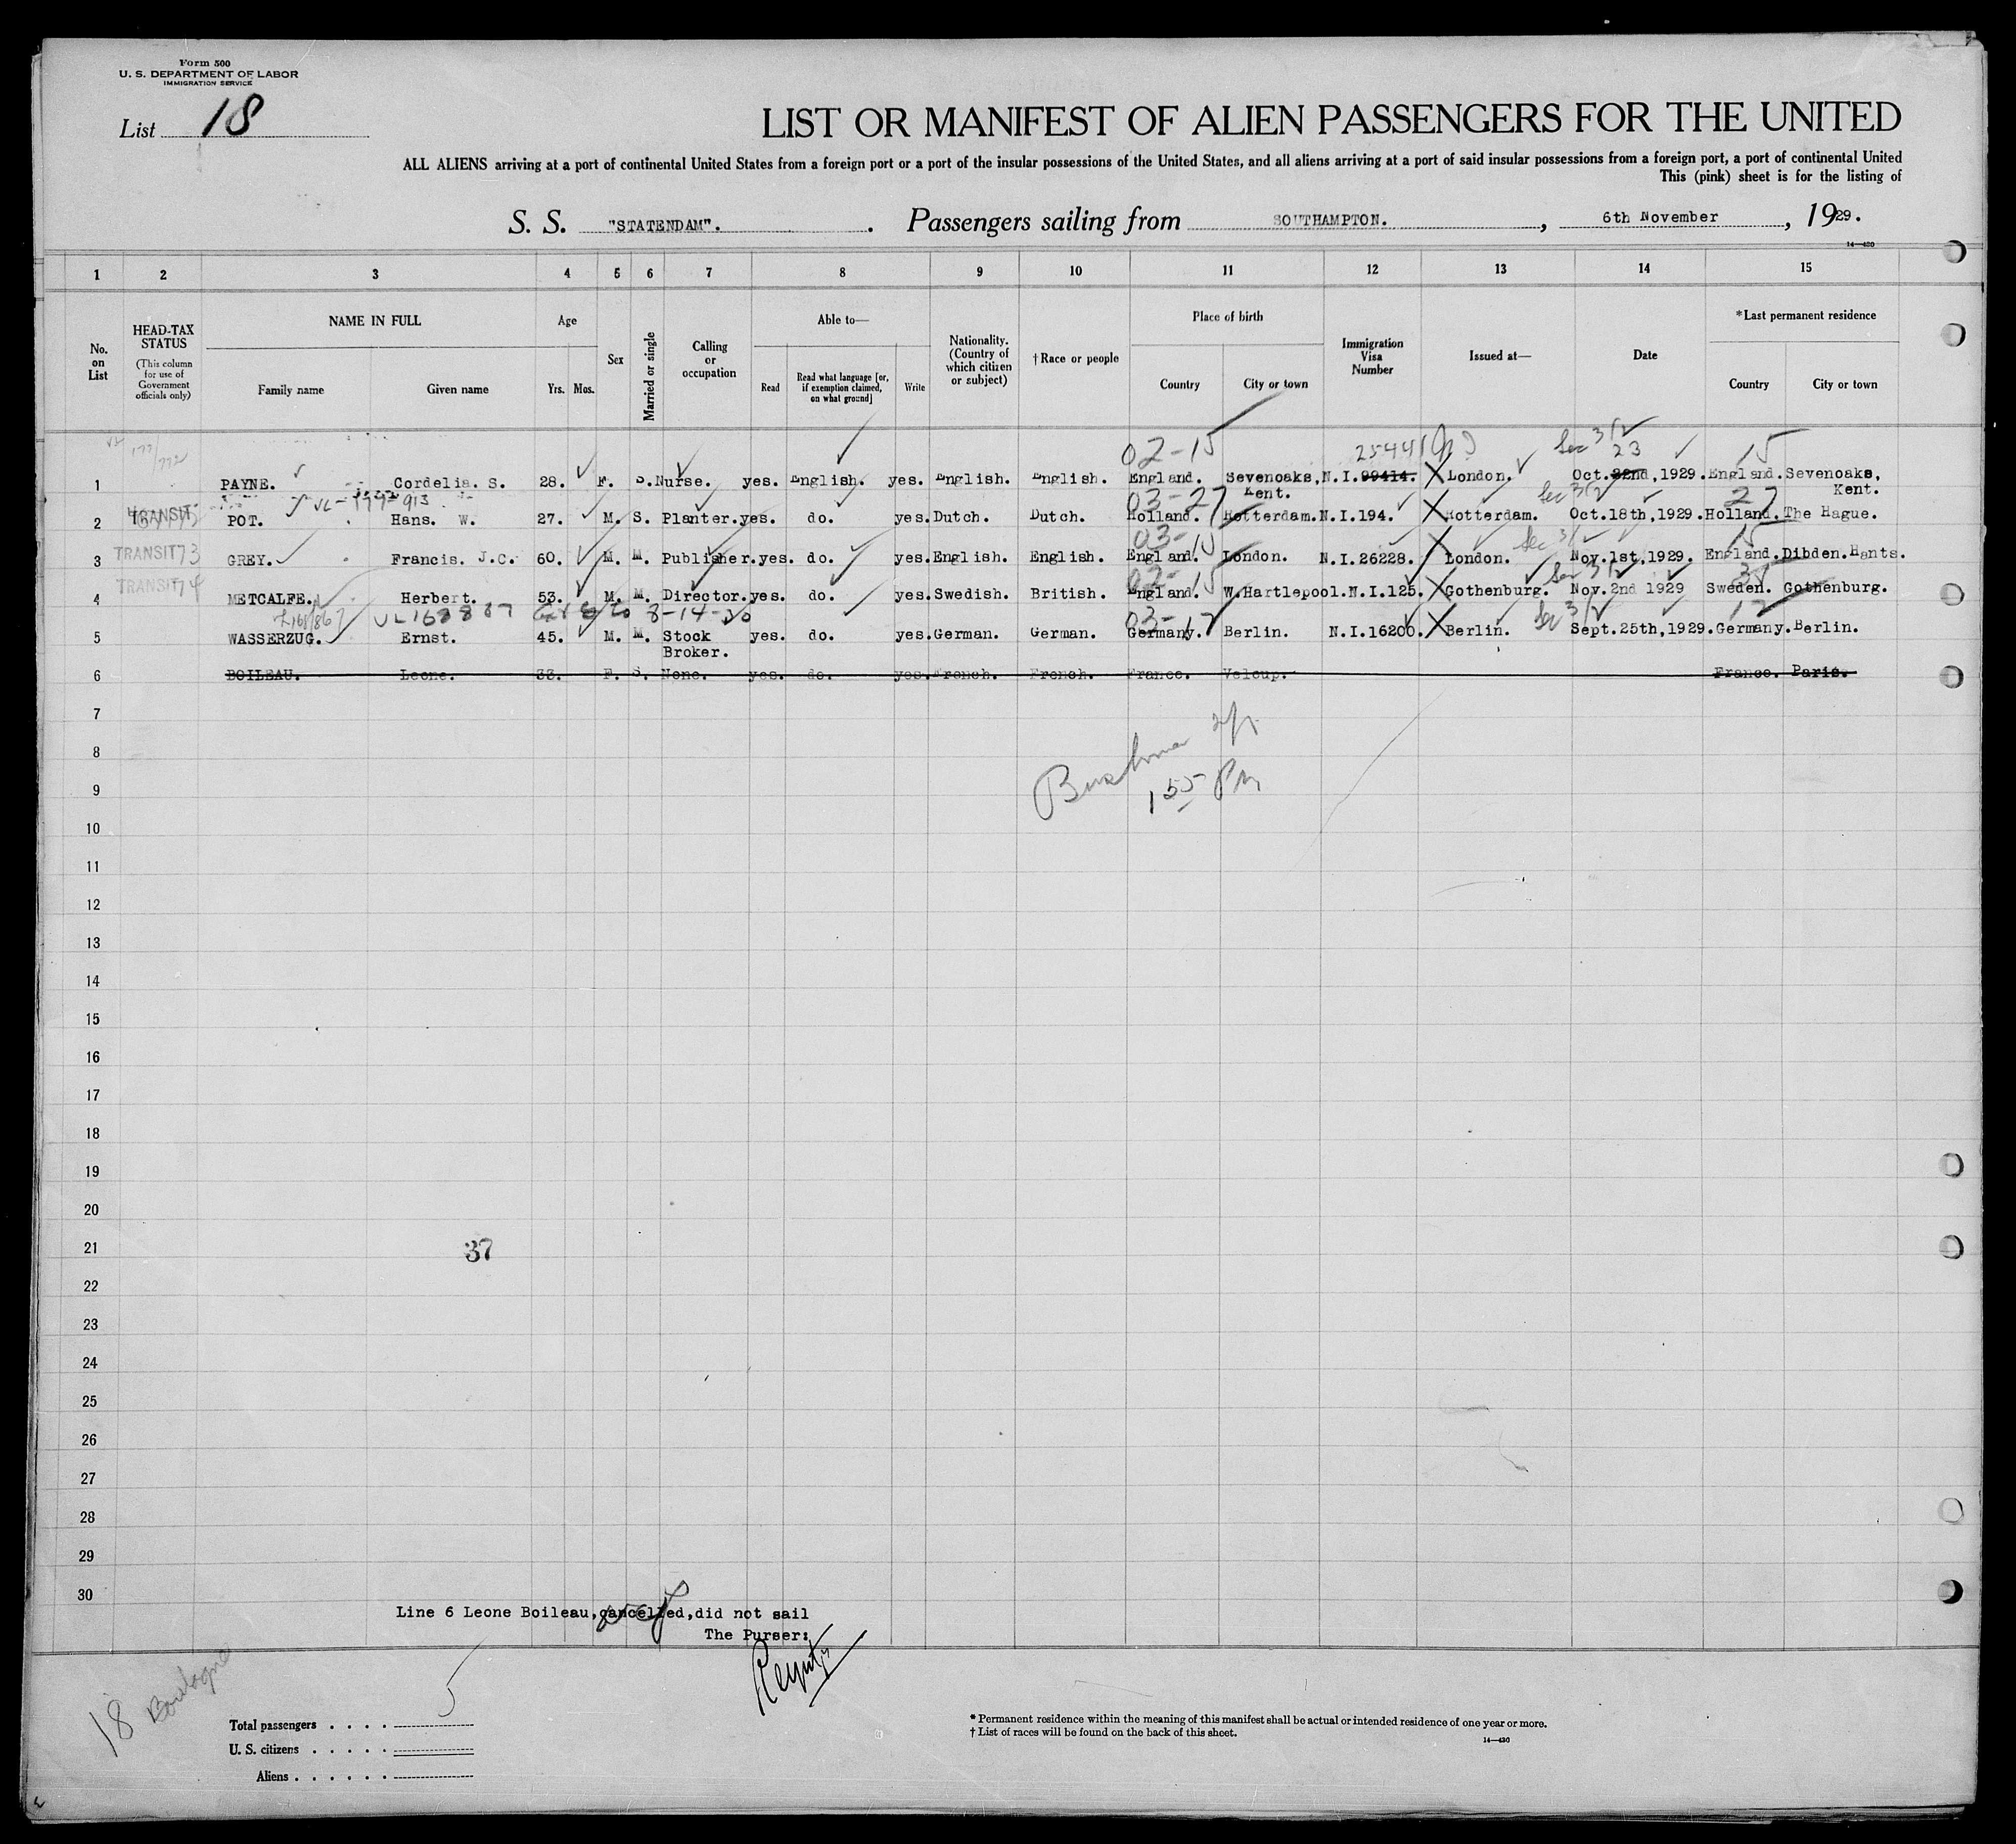 Form 500
U. S. DEPARTMENT OF LABOR
IMMIGRATION SERVICE
List 18
LIST OR MANIFEST OF ALIEN PASSENGERS FOR THE UNITED
ALL ALIENS arriving at a port of continental United States from a foreign port or a port of the insular possessions of the United States, and all aliens arriving at a port of said insular possessions from a foreign port, a port of continental United
This (pink) sheet is for the listing of
S. S. "STATENDAM". Passengers sailing from SOUTHAMPTON. , 6th November , 1929.
14—430
1 2 3 4 5 6 7 8 9 10 11 12 13 14 15
No. on List
HEAD-TAX STATUS
(This column for use of Government officials only)
NAME IN FULL
Family name
Given name
Age
Yrs. Mos.
Sex
Married or single
Calling or occupation
Able to—
Read
Read what language [or, if exemption claimed, on what ground]
Write
Nationality. (Country of which citizen or subject)
†Race or people
Place of birth
Country
City or town
Immigration Visa Number
Issued at—
Date
*Last permanent residence
Country
City or town
02-15 25441 Sec 3/2 23 15
1 PAYNE. Cordelia. S. 28. F. S. Nurse. yes. English. yes. English. English. England. Sevenoaks, Kent. N.I.99414. London. Oct. 22nd,1929. England. Sevenoaks, Kent.
03-27 Sec 3/2 27
2 TRANSIT POT. Hans. W. 27. M. S. Planter. yes. do. yes. Dutch. Dutch. Holland. Rotterdam. N.I.194. Rotterdam. Oct.18th,1929. Holland. The Hague.
03-15 Sec 3/2 15
3 TRANSIT 73 GREY. Francis. J.C. 60. M. M. Publisher. yes. do. yes. English. English. England. London. N.I.26228. London. Nov.1st,1929. England. Dibden.Hants.
15 Sec 3/2
4 TRANSIT 74 METCALFE. Herbert. 53. M. M. Director. yes. do. yes. Swedish. British. England. W.Hartlepool. N.I.125. Gothenburg. Nov.2nd 1929 Sweden. Gothenburg.
03-17 Sec 3/2 17
5 WASSERZUG. Ernst. 45. M. M. Stock Broker. yes. do. yes. German. German. Germany. Berlin. N.I.16200. Berlin. Sept.25th,1929. Germany. Berlin.
6 BOILEAU. Leone. 33. F. S. None. yes. do. yes. French. French. France. Veloup. France. Paris.
7
8
9
155 PM
10
11
12
13
14
15
16
17
18
19
20
21
37
22
23
24
25
26
27
28
29
30
Line 6 Leone Boileau,cancelled,did not sail
The Purser:
18 Boulogne
5
Total passengers
U. S. citizens
Aliens
* Permanent residence within the meaning of this manifest shall be actual or intended residence of one year or more.
† List of races will be found on the back of this sheet.
14—430